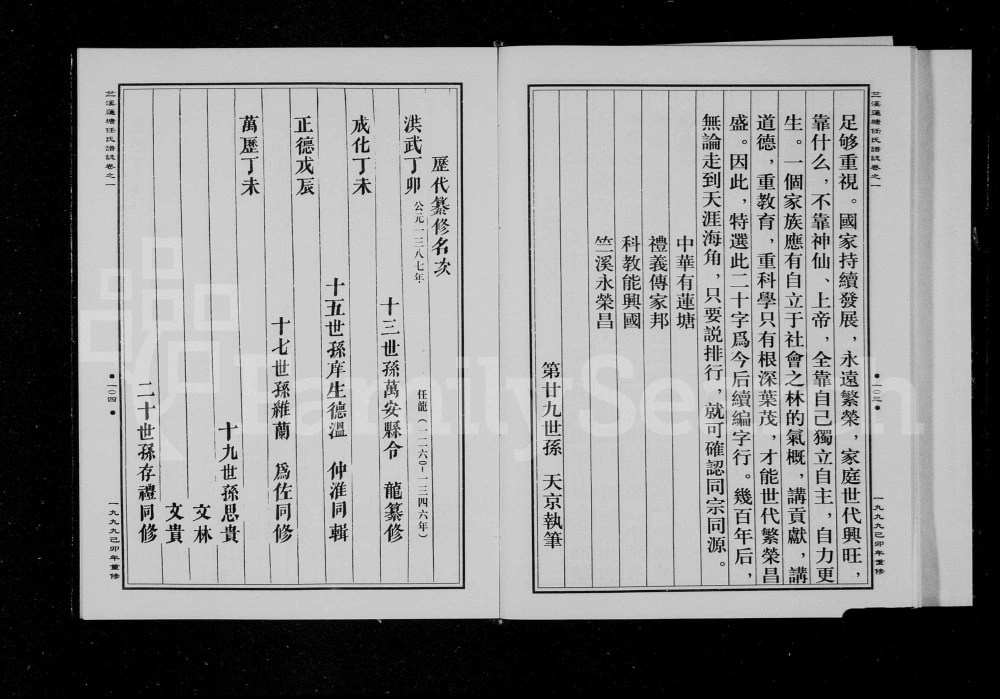 竺溪蓮塘任氏譜誌卷之一
足够重視。國家持續發展，永遠繁榮，家庭世代興旺，
靠什么，不靠神仙、上帝，全靠自己獨立自主，自力更
生。一個家族應有自立于社會之林的氣概，講貢獻，講
道德，重教育，重科學只有根深葉茂，才能世代繁榮昌
盛。因此，特選此二十字爲今后續編字行。幾百年后，
無論走到天涯海角，只要説排行，就可確認同宗同源。
中華有蓮塘
禮義傳家邦
科教能興國
竺溪永榮昌
第廿九世孫　天京執筆
●一〇三●
一九九九己卯年重修
歷代纂修名次
洪武丁卯 公元一三八七年
任龍（一二六〇-一三四六年）
十三世孫萬安縣令　龍纂修
成化丁未
十五世孫庠生德溫　仲淮同輯
正德戊辰
十七世孫維蘭　爲佐同修
萬歷丁未
十九世孫思貴
文林
文貴
二十世孫存禮同修
竺溪蓮塘任氏譜誌卷之一
●一〇四●
一九九九己卯年重修
FamilySearch